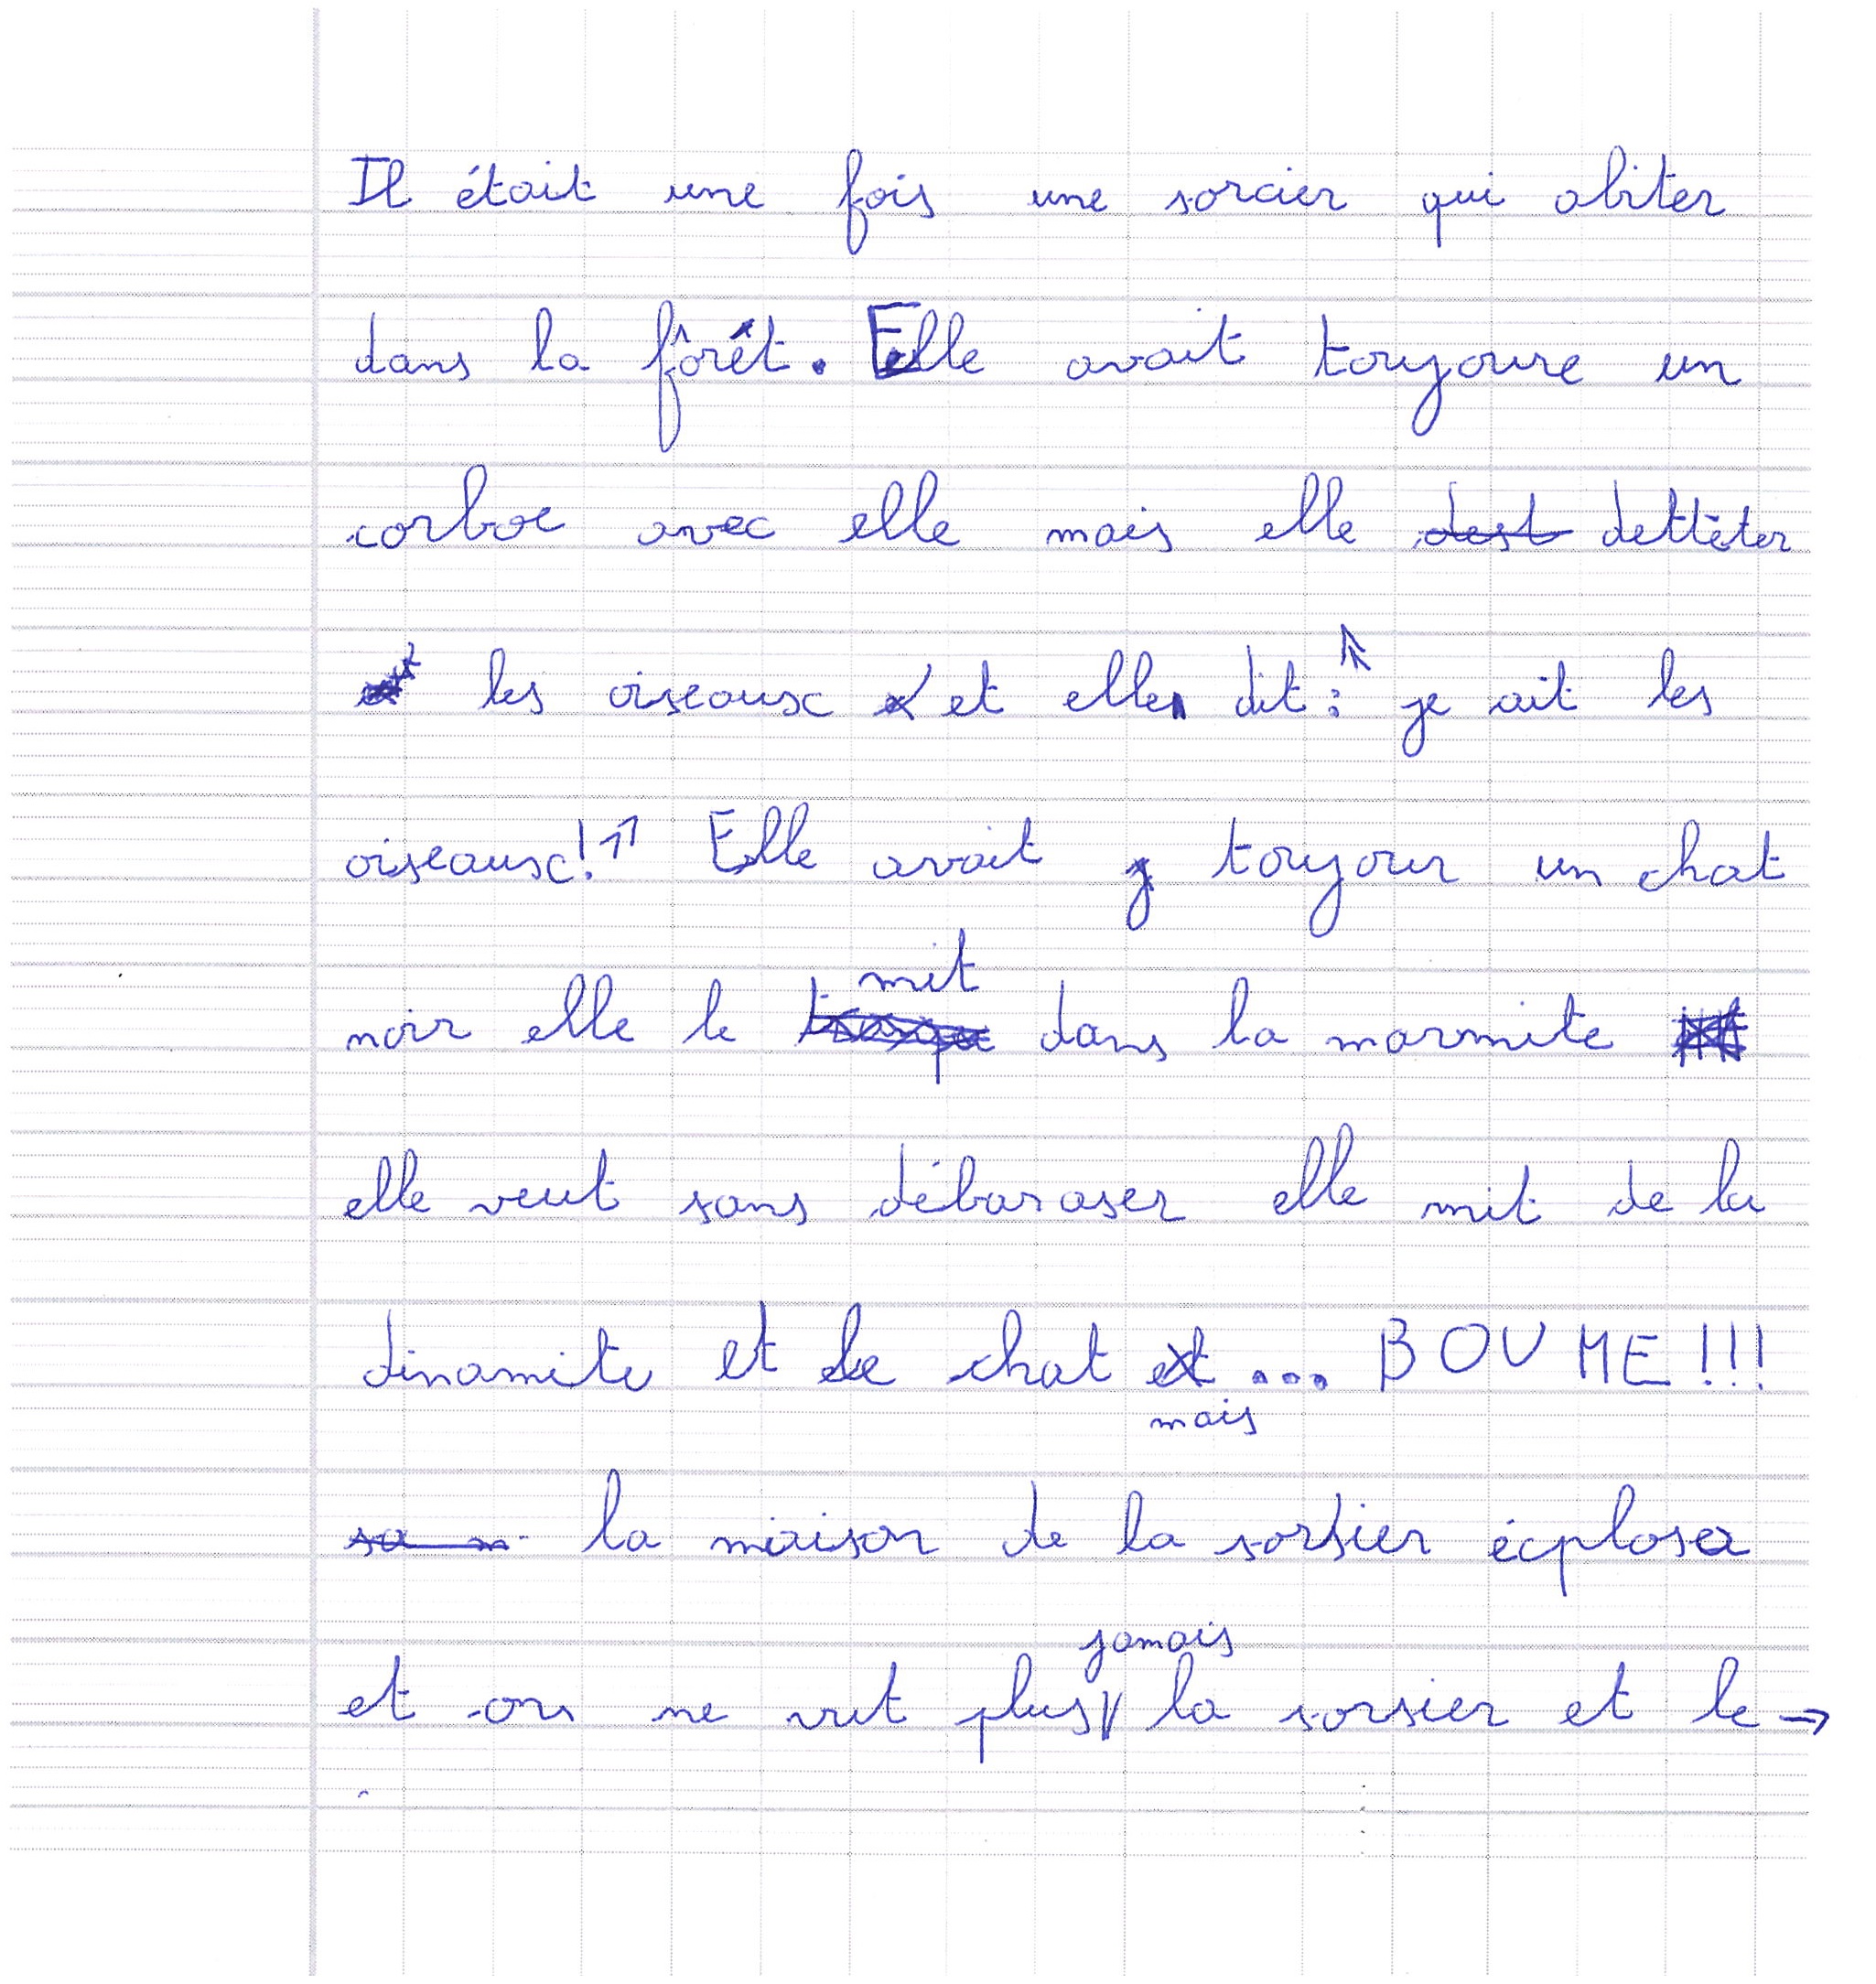 Il était une fois une sorcier qui abiter
dans la fôrét. Elle avait toujoure un
corboe avec elle mais elle dest dettèter
les oiseausc et elle dit : "je ait les
oiseausc!" Elle avait toujour un chat
noir elle le mit dans la marmite
elle veut sans débaraser elle mit de la
dinamite et le chat et ... BOUME!!!
mais
sa m la maison de la sorsier écplosa
jamais
et on ne vit plus la sorsier et le →